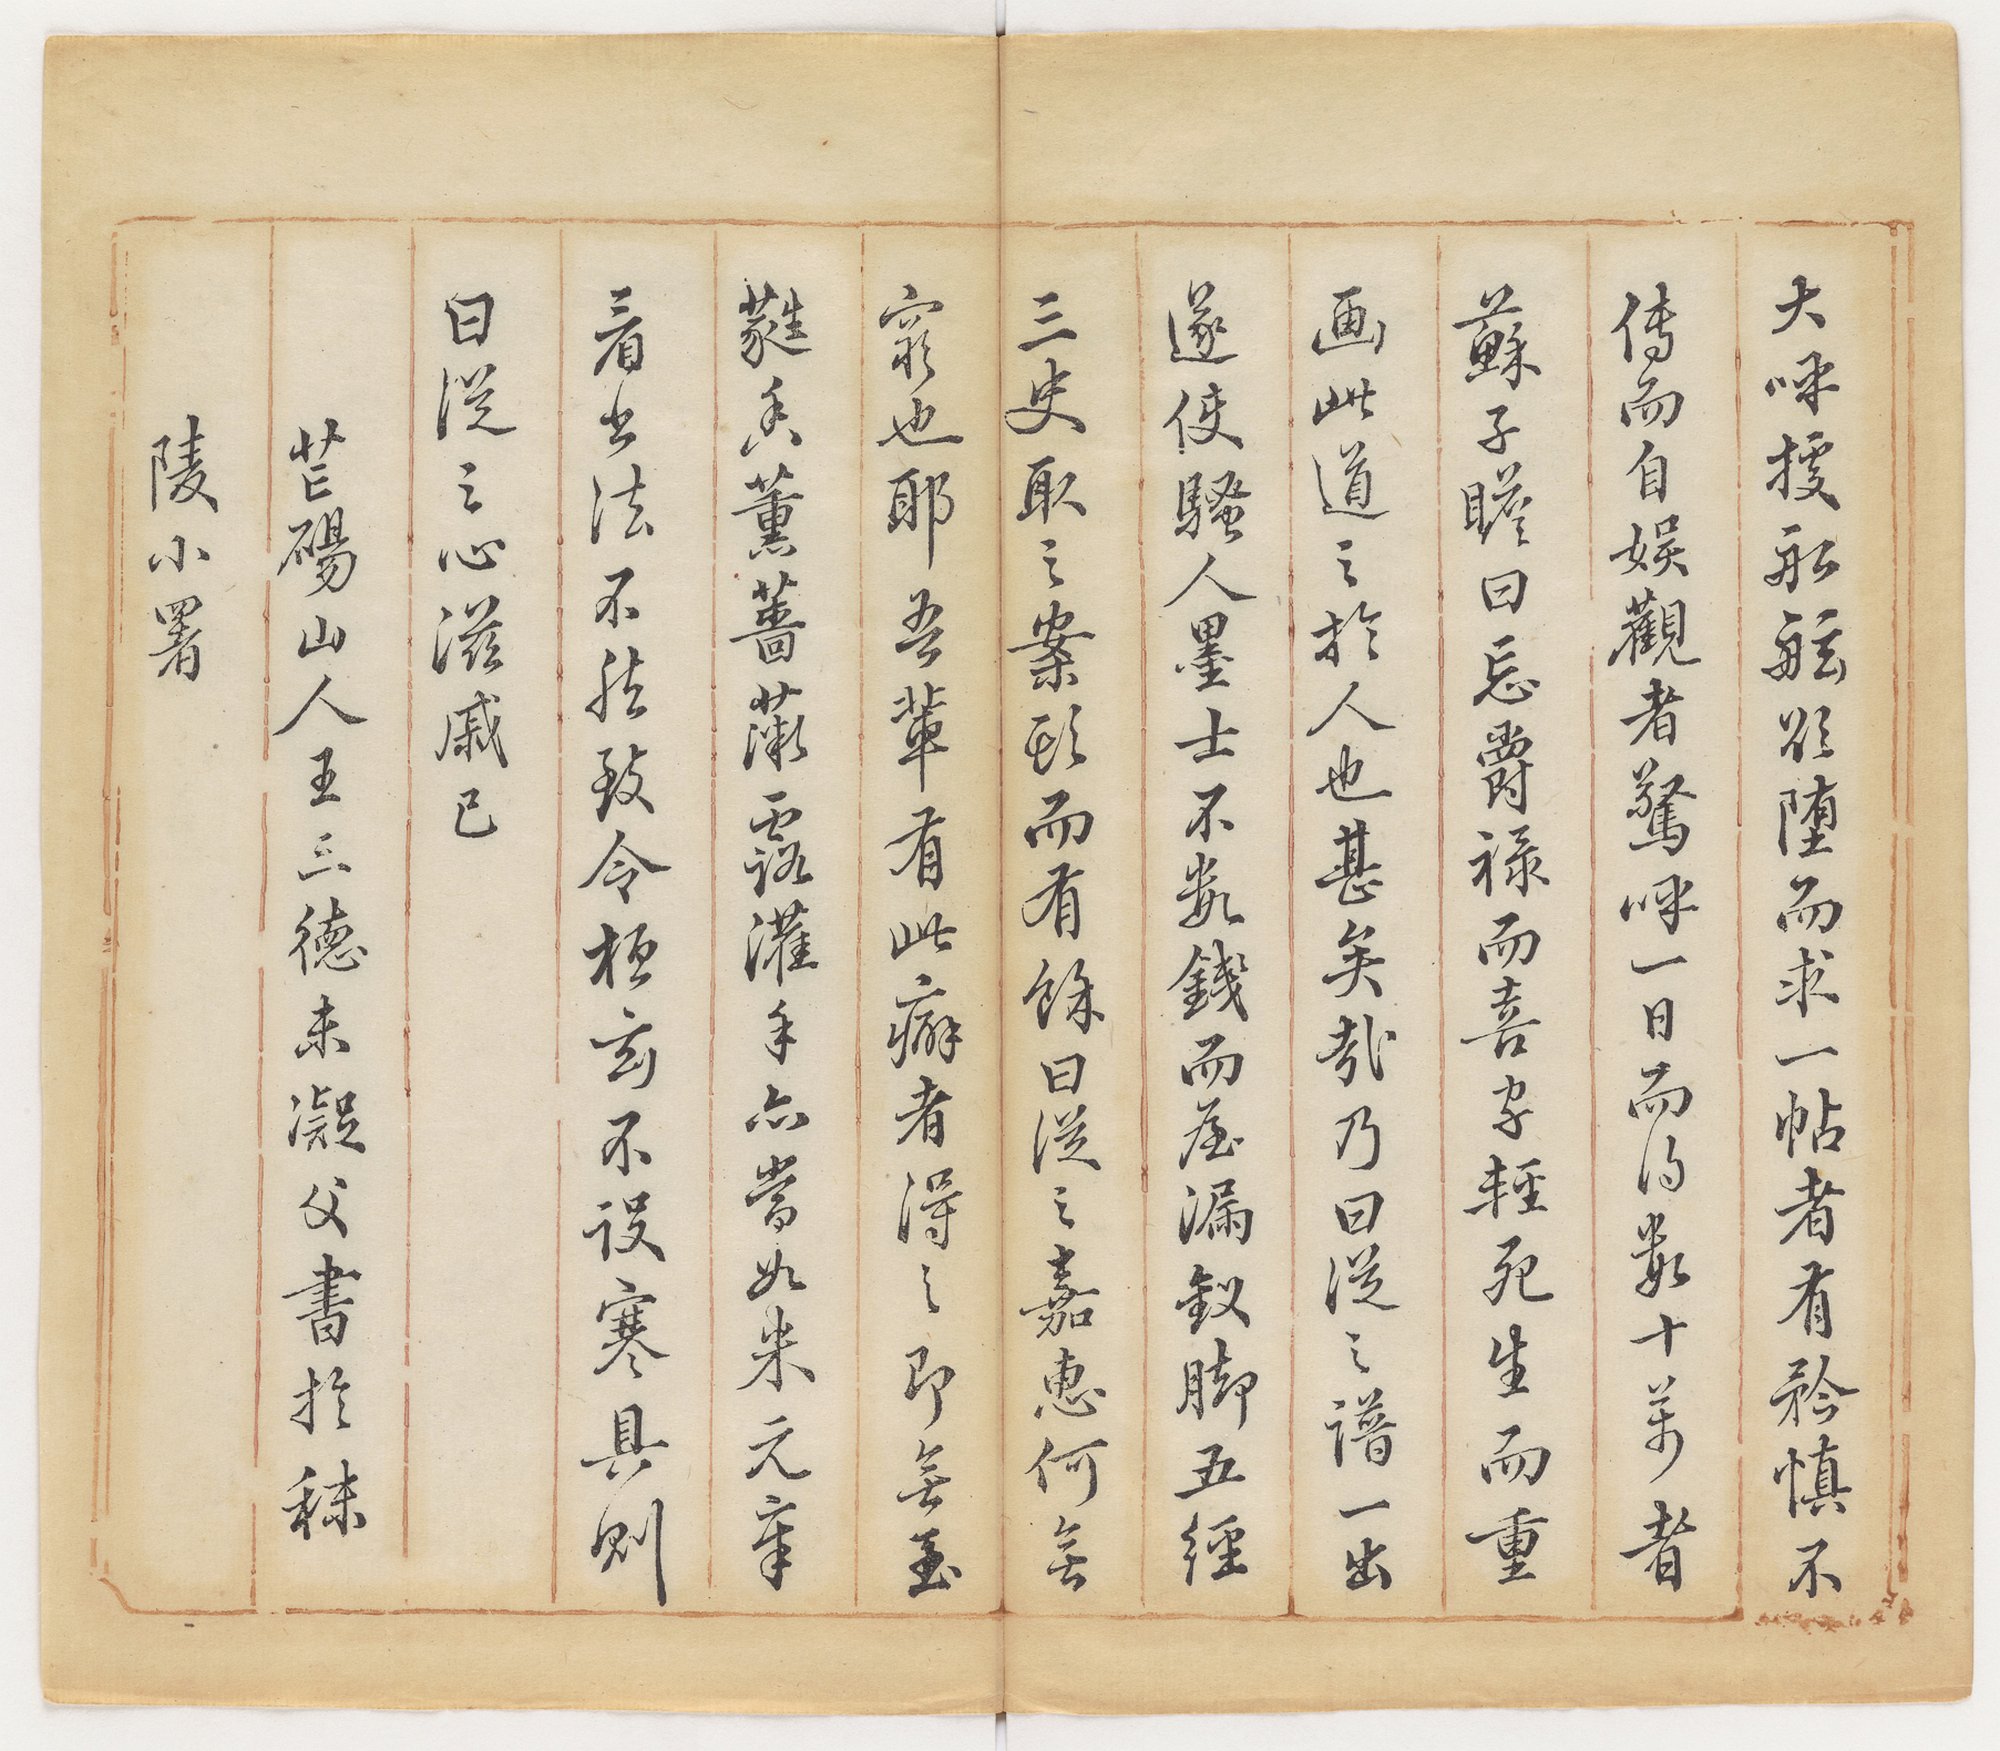 大呼據船舷欲墮而求一帖者有矜慎不
傳而自娛觀者驚呼一日而得數十萬者
蘇子瞻曰忘爵祿而喜字輕死生而重
画此道之於人也甚矣哉乃曰從之譜一出
遂使騷人墨士不數錢而屋漏釵脚五經
三史取之案頭而有餘曰從之嘉惠何無
窮也耶吾輩有此癖者得之即無玉
蕤香薰薔薇露灌手亦當如米元章
看書法不然致令桓玄不設寒具則
曰從之心滋戚已
芒碭山人王三德未凝父書於秣
陵小署